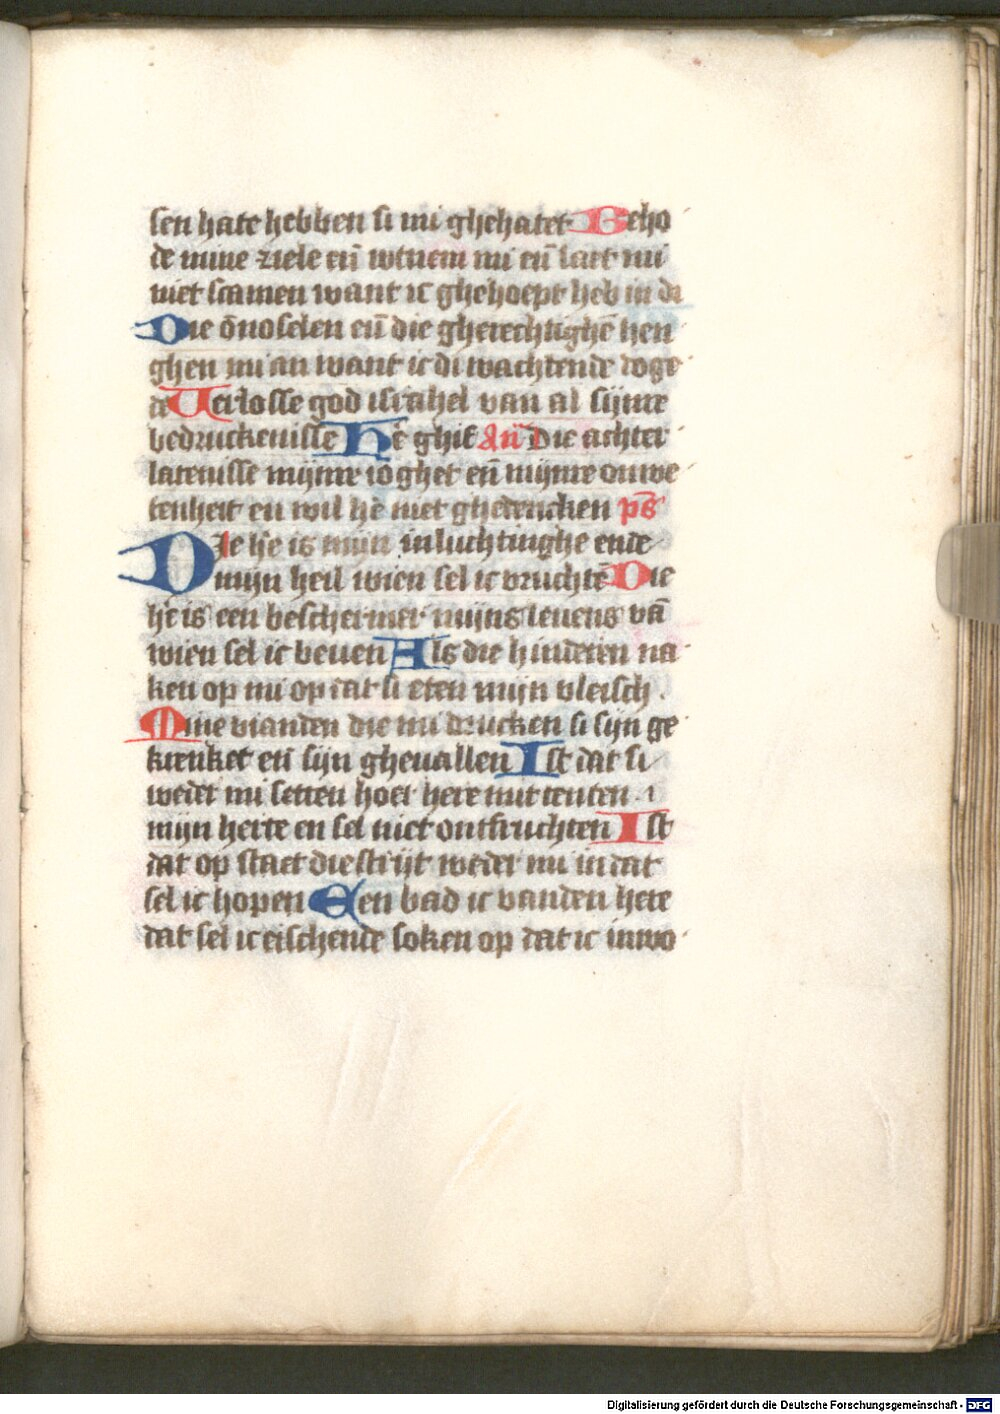 sen hate hebben si mi ghehatet Beho
de mine ziele en̄ wtnem mi en̄ laet mi
niet scamen want ic ghehoept heb in di
Die ōnoselen en̄ die gherechtighē hen
ghen mi an want ic di wachtende doge
de Verlosse god israhel van al sijnre
bedruckenisse Hē ghif An̄ Die achter
latenisse mijnre ioghet en̄ mijnre onwe
tenheit en wil hē niet ghedencken ps̄
Die hē is mijn inluchtinghe ende
mijn heil wien sel ic vruchtē Die
hē is een beschermer mijns leuens vā
wien sel ic beuen Als die hinderen na
ken op mi op dat si eten mijn vleisch .
Mine vianden die mi drucken si sijn ge
krenket en̄ sijn gheuallen Ist dat si
weder mi setten hoer here mit tenten .
mijn herte en sel niet ontfruchten Ist
dat op staet die strijt weder mi in dat
sel ic hopen Een bad ic vanden here
dat sel ic eischende soken op dat ic inwo
Digitalisierung gefördert durch die Deutsche Forschungsgemeinschaft - DFG